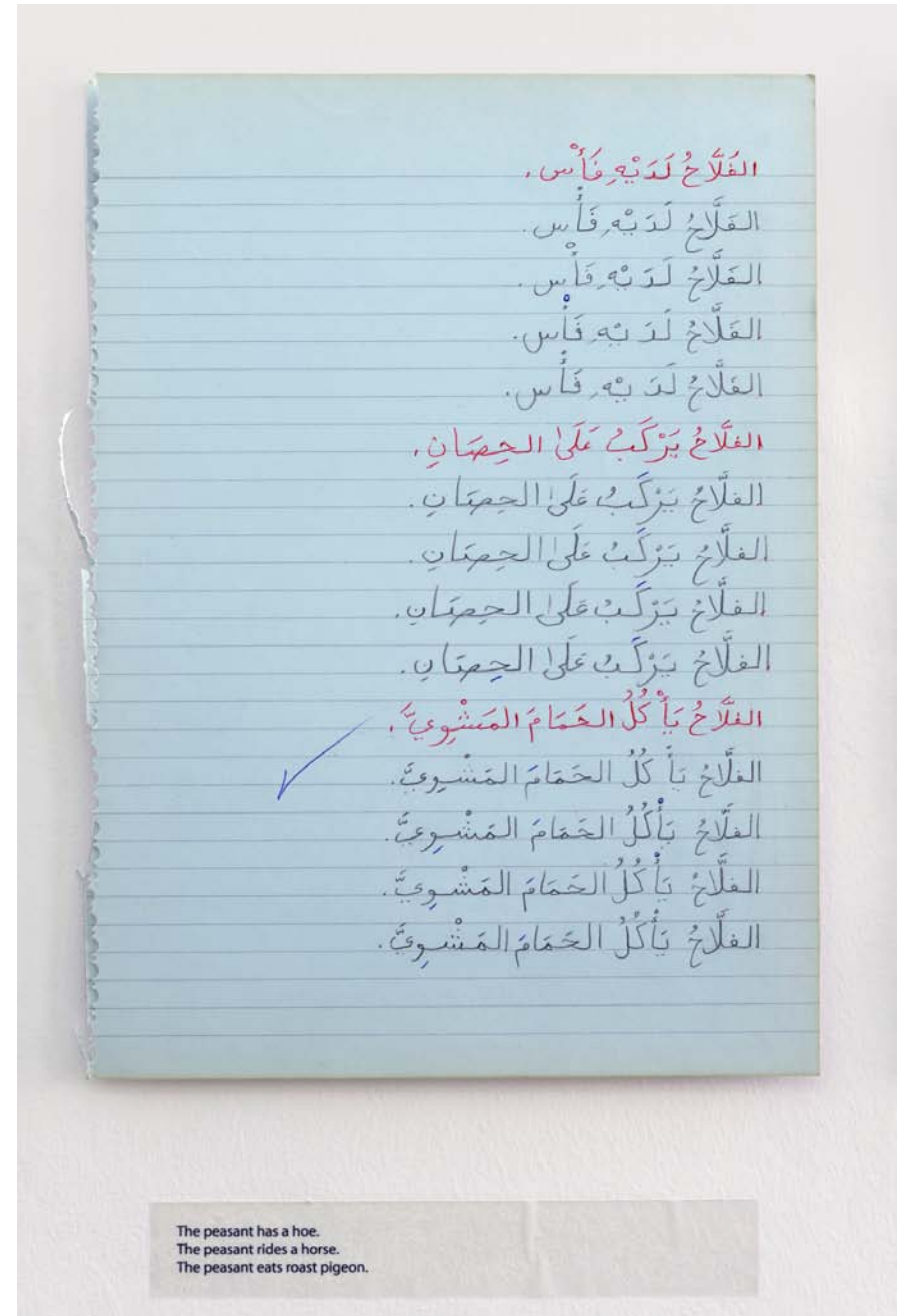 الفَلَّاحُ لَدَيْهِ فَأْس.
الفَلَّاحُ لَدَيْهِ فَأْس.
الفَلَّاحُ لَدَيْهِ فَأْس.
الفَلَّاحُ لَدَيْهِ فَأْس.
الفَلَّاحُ لَدَيْهِ فَأْس.
الفلَّاحُ يَرْكَبُ عَلَىٰ الحِصَانِ.
الفلَّاحُ يَرْكَبُ عَلَىٰ الحِصَانِ.
الفلَّاحُ يَرْكَبُ عَلَىٰ الحِصَانِ.
الفلَّاحُ يَرْكَبُ عَلَىٰ الحِصَانِ.
الفلَّاحُ يَرْكَبُ عَلَىٰ الحِصَانِ.
الفلَّاحُ يَأْكُلُ الحَمَامَ المَشْوِيَّ.
الفلَّاحُ يَأكُلُ الحَمَامَ المَشْوِيَّ.
الفلَّاحُ يَأْكُلُ الحَمَامَ المَشْوِيَّ.
الفلَّاحُ يَأْكُلُ الحَمَامَ المَشْوِيَّ.
الفلَّاحُ يَأْكُلُ الحَمَامَ المَشْوِيَّ.
The peasant has a hoe.
The peasant rides a horse.
The peasant eats roast pigeon.